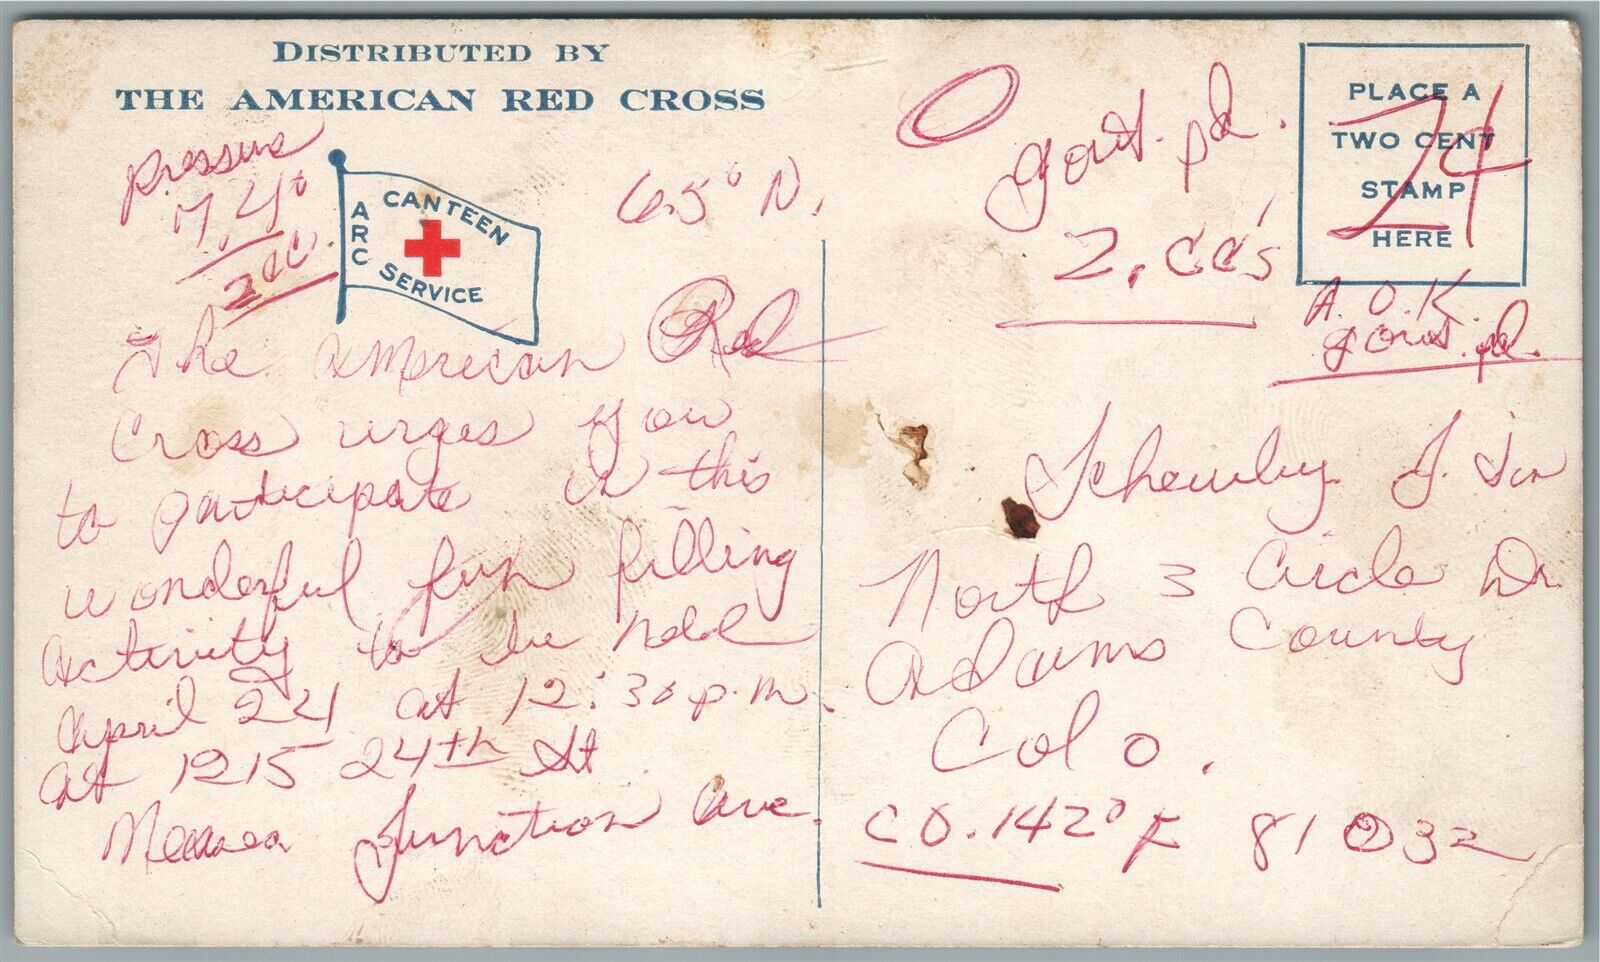 DISTRIBUTED BY
THE AMERICAN RED CROSS
pressure
17.40
200
ARC
CANTEEN
SERVICE
65° N.
The American Red
Cross urges you
to participate in this
wonderful fun filling
activity to be held
April 24 at 12:30 p.m.
at 1215 24th St
Junction Ave.
Govt. pd.
2. CC's
PLACE A
TWO CENT
STAMP
HERE
A.O.K.
govt. pd.
J. Sin
North 3 Circle Dr
Adams County
Colo.
CO. 142° F 81032